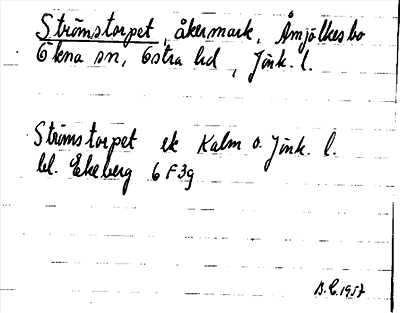 Strömstorpet, åkermark, Åmjölkesbo
Ökna sn, Östra hd, Jönk. l.
Strömstorpet ek Kalm o. Jönk. l.
bl. Ekeberg 6 F 3g
B. E. 1957